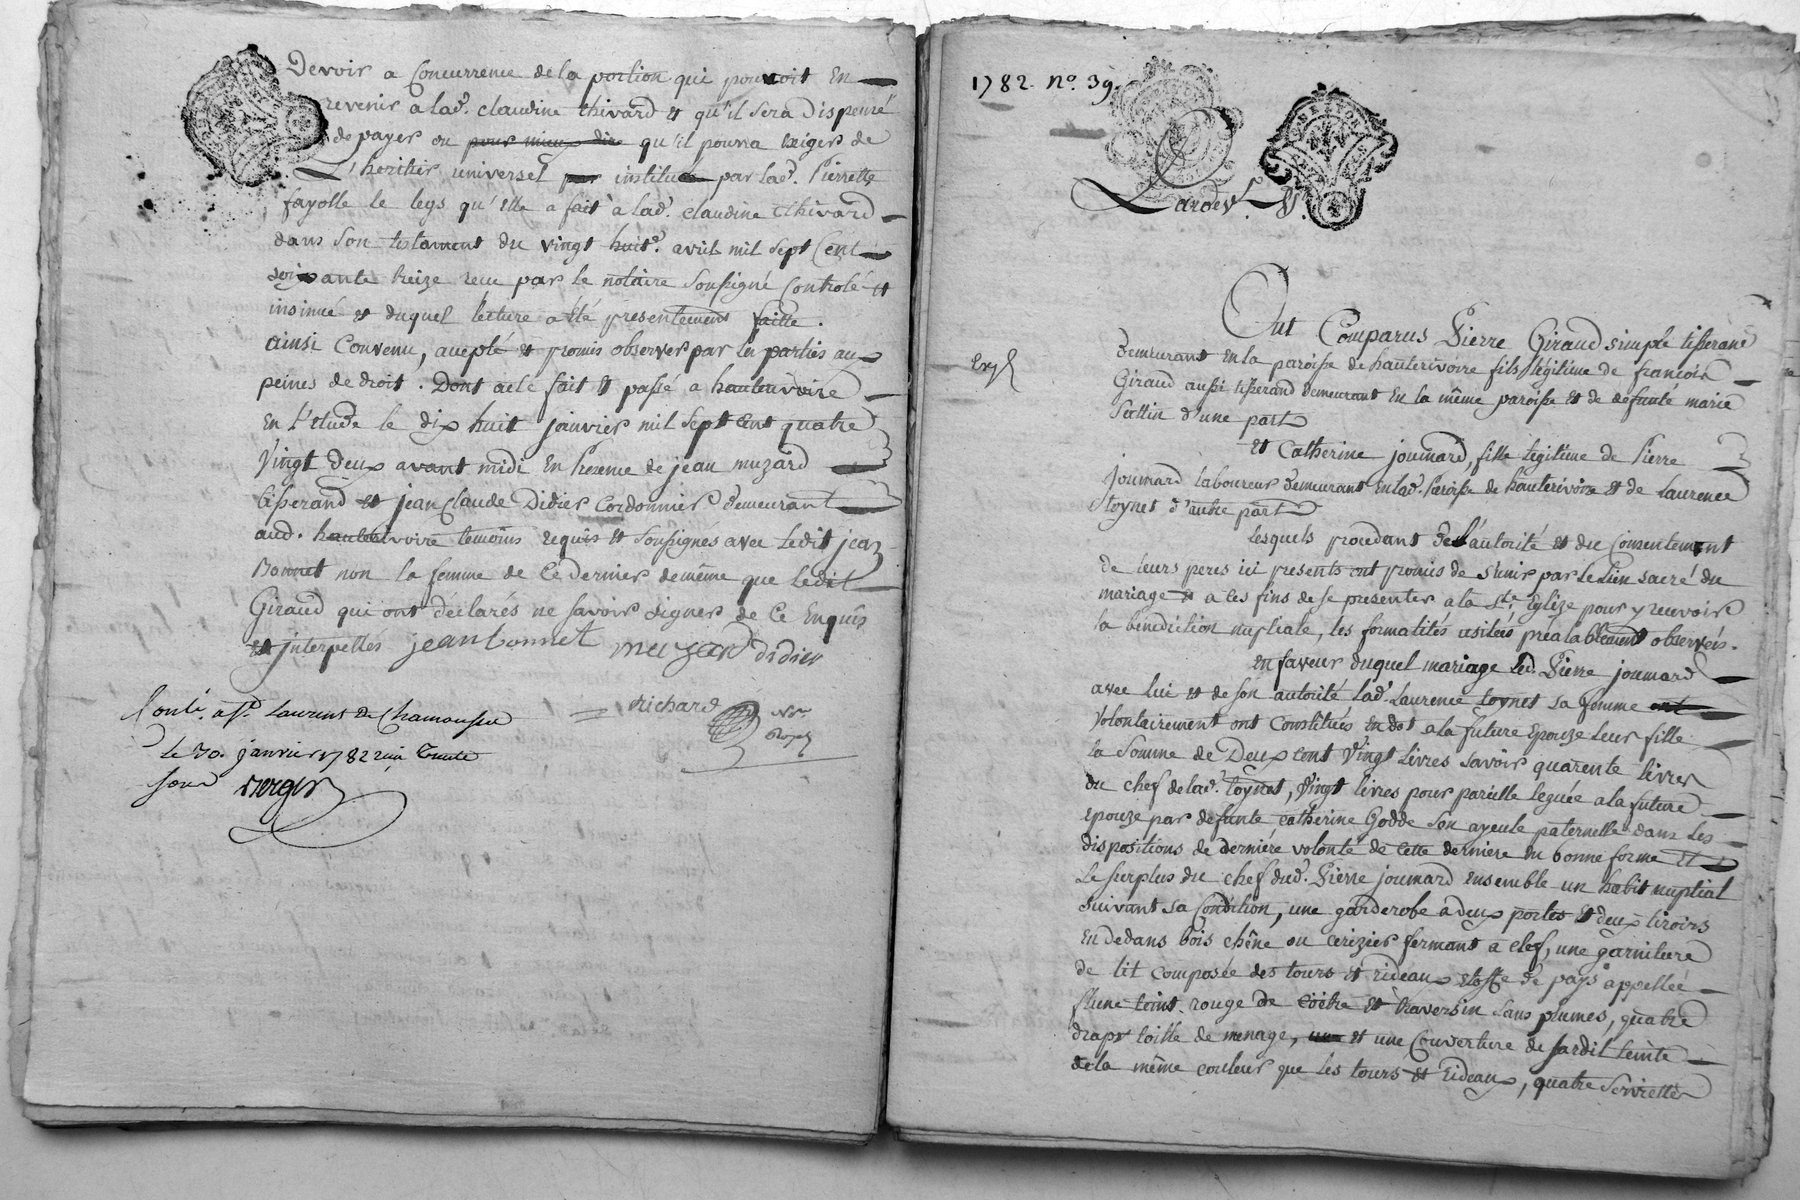 Devoir a Concurrence de la portion qui pouvoit En
revenir a lad. claudine thivard et qu'il sera Dispensé
de payer ou pour mieux dire qu'il pourra exiger de
L'heritier universel par institué par lad. Pierrette
fayolle le legs qu'elle a fait a lad. claudine thivard
dans son testament du vingt huit. avril mil sept Cent
soixante treize recu par le notaire soussigné Controlé et
insinué et duquel lecture a été presentement faitte.
ainsi Convenu, accepté et promis observer par les parties aux
peines de droit. Dont acte fait et passé a hauterivoire
En l'etude le dix huit janvier mil sept cent quatre
Vingt Deux avant midi En Presence de jean muzard
tisserand et jean Claude Didier Cordonnier demeurant
aud. hauterivoire temoins requis et soussignés avec ledit jean
Bonnet non la femme de Ce dernier de même que ledit
Giraud qui ont déclarés ne savoir signer de Ce Enquis
et interpellés jean bonnet muzard didier
Richard
Contl. a St. Laurent de Chamousset
le 30. janvier 1782 recu trente
sous verger
1782. No. 39.
Ont Comparus Pierre Giraud simple tisserand
Demeurant En la paroisse de hauterivoire fils légitime de francois
Giraud aussi tisserand demeurant En la même paroisse et de défunte marie
d'une part
et Catherine joumard, fille legitime de Pierre
joumard laboureur demeurant En lad. Paroisse de hauterivoire et de laurence
toynet d'autre part
lesquels procedant de l'autorité et du Consentement
de leurs peres ici presents ont promis de s'unir par le lien sacré du
mariage et a ces fins de se presenter a la Ste. Eglize pour y recevoir
la bénédiction nuptiale, les formalités usitées préalablement observées.
en faveur duquel mariage led. Pierre joumard
avec lui et de son autorité lad. Laurence toynet sa femme ont
volontairement ont Constitués en dot a la future Epouze leur fille
la somme de Deux cent Vingt Livres savoir quarente livres
du chef de lad. toynet, vingt livres pour pareille leguée a la future
epouze par defunte catherine Godde son ayeule paternelle dans les
dispositions de derniére volonté de cette derniere en bonne forme et
le surplus du chef dud. Pierre joumard ensemble un habit nuptial
suivant sa Condition, une garderobe a deux portes et deux tiroirs
en dedans bois chêne ou cerizier fermant a clef, une garniture
de lit composée des tours et rideaux etoffe de pays appellée
teint rouge de coëtre et traversin sans plumes, quatre
draps toille de menage, un et une Couverture de sardit teinte
de la même couleur que les tours et rideaux, quatre serviettes